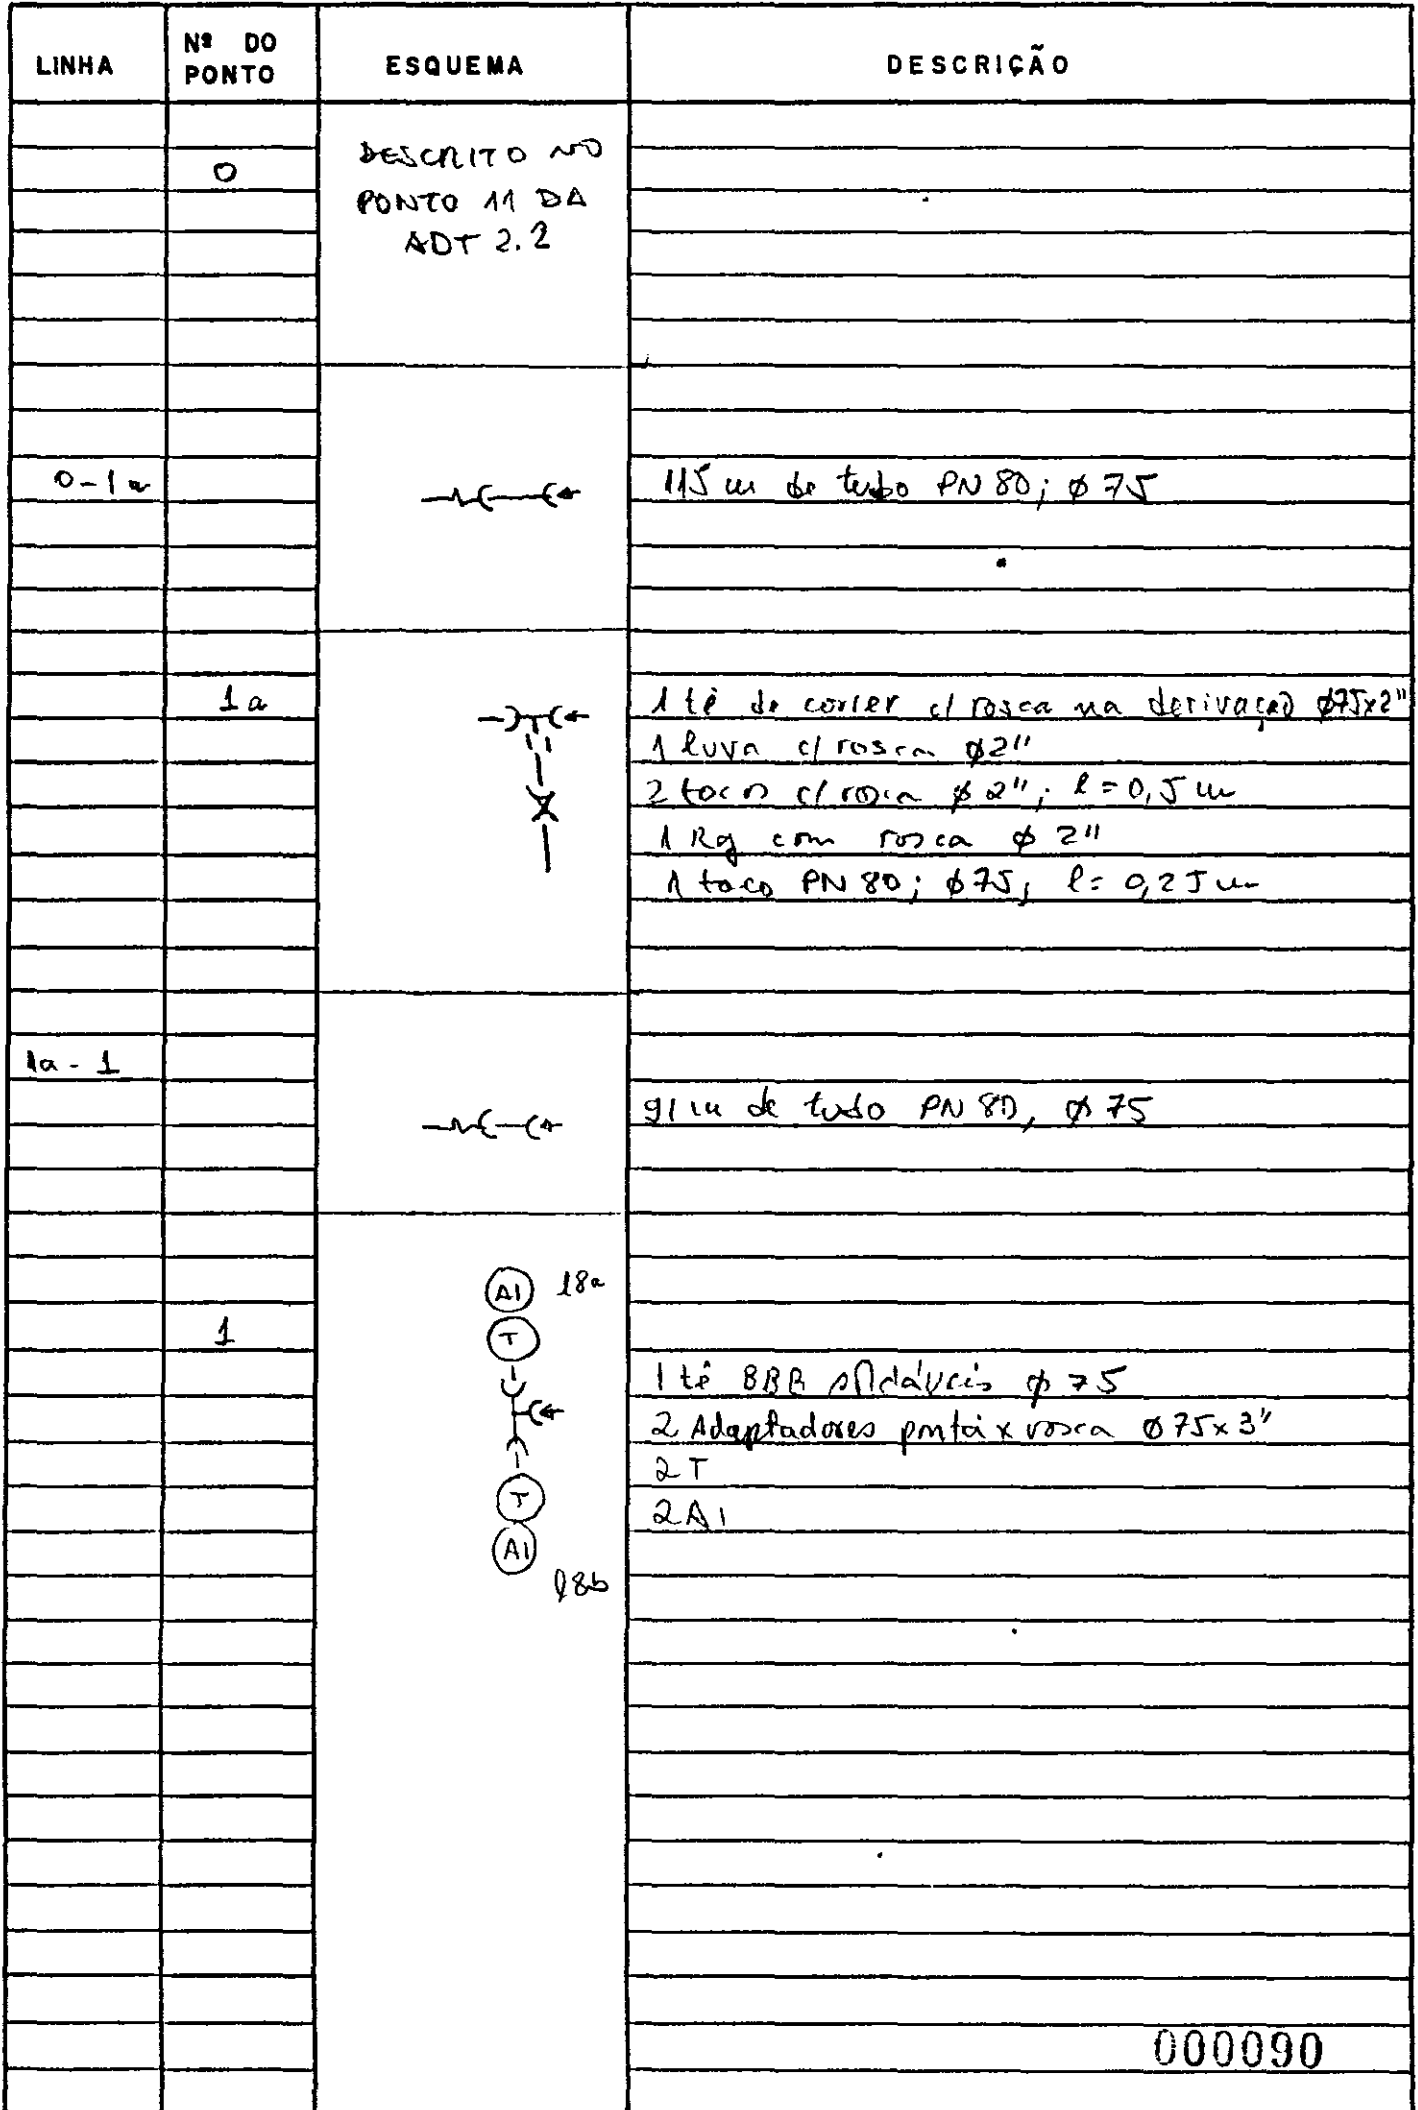 LINHA
Nº DO PONTO
ESQUEMA
DESCRIÇÃO
0
DESCRITO NO
PONTO 11 DA
ADT 2.2
0-1a
115 m de tubo PN 80; φ 75
1a
1 tê de correr c/ rosca na derivação φ75x2"
1 luva c/ rosca φ2"
2 tocos c/ rosca φ 2"; l = 0,5 m
1 Rg com rosca φ 2"
1 toco PN 80; φ75, l = 0,25 m
1a - 1
91 m de tubo PN 80, φ 75
AI 18a
1
T
1 tê BBB soldáveis φ 75
2 Adaptadores ponta x rosca φ75 x 3"
2 T
T
2 AI
AI
18b
000090